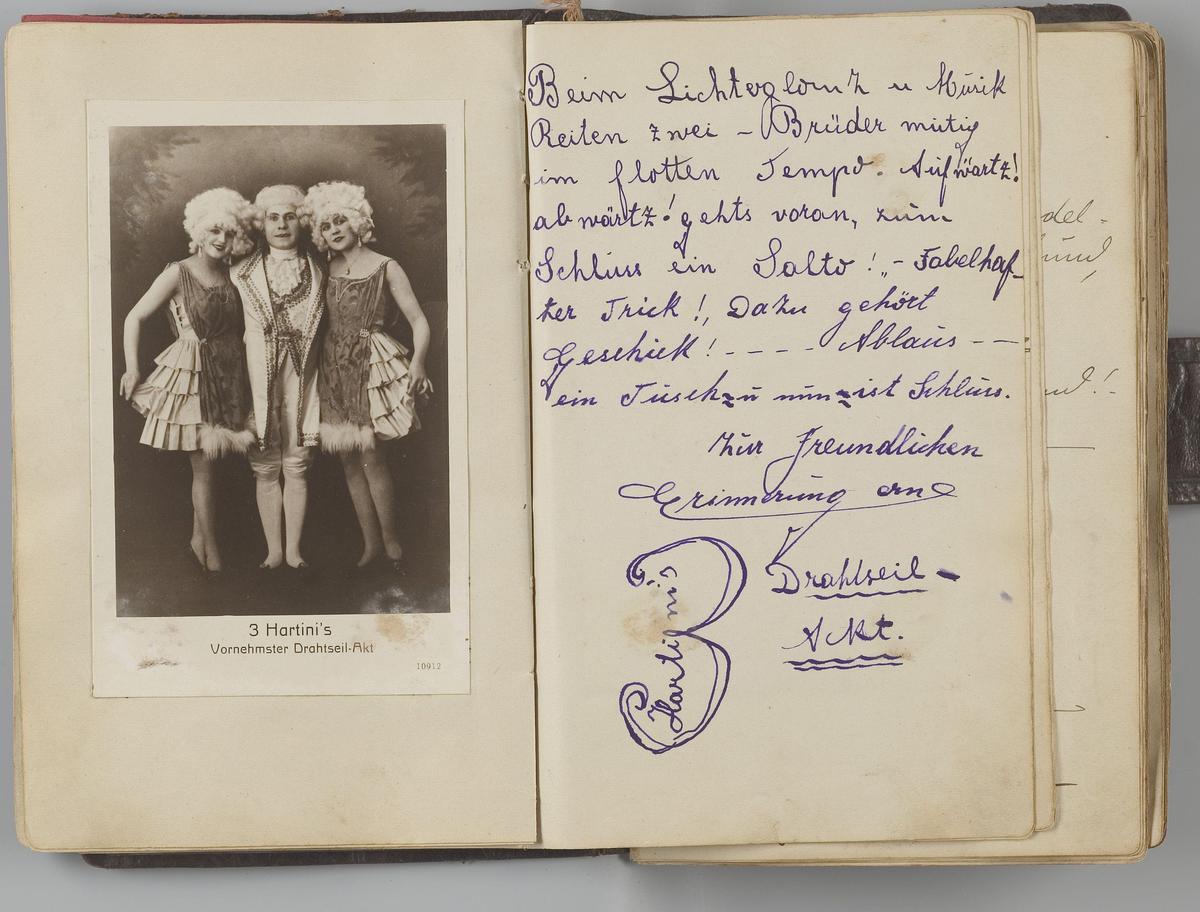 3 Hartini's
Vornehmster Drahtseil-Akt
10912
Beim Lichterglanz u Musik
Reiten zwei - Brüder mutig
im flotten Tempo. Aufwärtz!
abwärtz! gehts voran, zum
Schluss ein Salto! - Fabelhaf-
ter Trick!, Dazu gehört
Geschick! - - - - Ablaus - -
ein Tusch u nun ist Schluss.
Zur freundlichen
Erinnerung an
3 Hartinis
Drahtseil -
Akt.
del -
und,